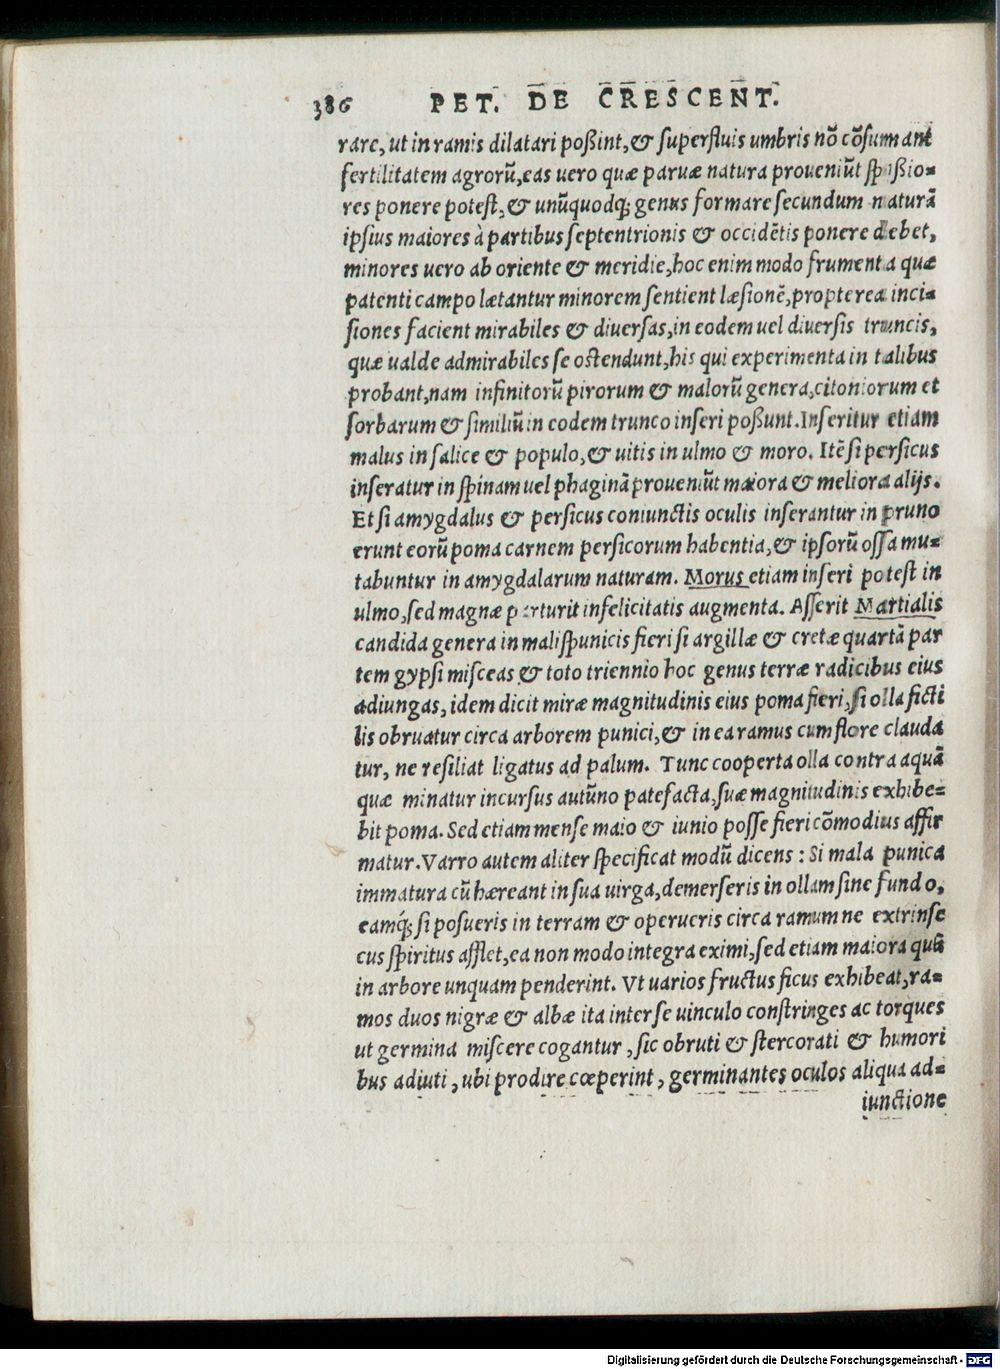 386 PET. DE CRESCENT.
rare, ut in ramis dilatari poßint, & superfluis umbris nō cōsumant
fertilitatem agrorū, eas uero quæ paruæ natura proueniūt spißio-
res ponere potest, & unūquodq; genus formare secundum naturā
ipsius maiores à partibus septentrionis & occidētis ponere debet,
minores uero ab oriente & meridie, hoc enim modo frumenta quæ
patenti campo lætantur minorem sentient læsionē, propterea inci-
siones facient mirabiles & diuersas, in eodem uel diuersis truncis,
quæ ualde admirabiles se ostendunt, his qui experimenta in talibus
probant, nam infinitorū pirorum & malorū genera, citoniorum et
sorbarum & similiū in eodem trunco inseri poßunt. Inseritur etiam
malus in salice & populo, & uitis in ulmo & moro. Itē si persicus
inseratur in spinam uel phaginā proueniūt maiora & meliora alijs.
Et si amygdalus & persicus coniunctis oculis inserantur in pruno
erunt eorū poma carnem persicorum habentia, & ipsorū ossa mu-
tabuntur in amygdalarum naturam. Morus etiam inseri potest in
ulmo, sed magnæ parturit infelicitatis augmenta. Asserit Martialis
candida genera in malis punicis fieri si argillæ & cretæ quartā par
tem gypsi misceas & toto triennio hoc genus terræ radicibus eius
adiungas, idem dicit miræ magnitudinis eius poma fieri, si olla ficti
lis obruatur circa arborem punici, & in ea ramus cum flore clauda
tur, ne resiliat ligatus ad palum. Tunc cooperta olla contra aquā
quæ minatur incursus autūno patefacta, suæ magnitudinis exhibe-
bit poma. Sed etiam mense maio & iunio posse fieri cōmodius affir
matur. Varro autem aliter specificat modū dicens : Si mala punica
immatura cū hæreant in sua uirga, demerseris in ollam sine fundo,
eamq́; si posueris in terram & operueris circa ramum ne extrinse
cus spiritus afflet, ea non modo integra eximi, sed etiam maiora quā
in arbore unquam penderint. Vt uarios fructus ficus exhibeat, ra-
mos duos nigræ & albæ ita inter se uinculo constringes ac torques
ut germina miscere cogantur, sic obruti & stercorati & humori
bus adiuti, ubi prodire cœperint, germinantes oculos aliqua ad-
iunctione
Digitalisierung gefördert durch die Deutsche Forschungsgemeinschaft - DFG